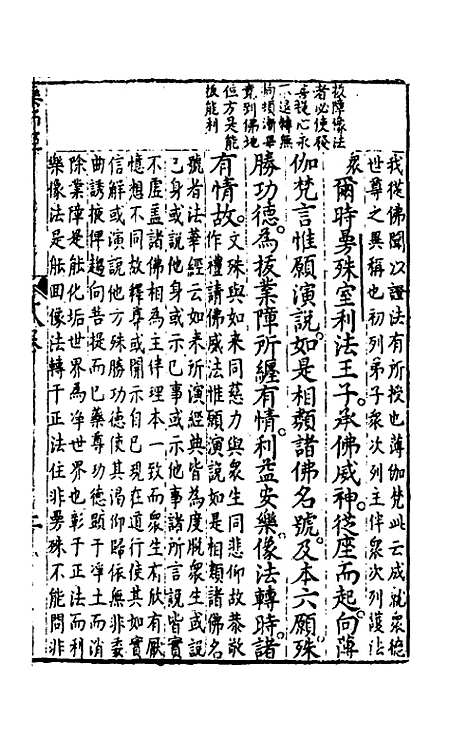 拔障像法
者必使發
善提心永
不退轉無
尚須漸畢
竟到佛地
位方是能
拔能利
我從佛聞以證法有所授也薄伽梵此云成就衆德
世尊之異稱也初列弟子衆次列主伴衆次列護法
衆
爾時曼殊室利法王子承佛威神從座而起向薄
伽梵言惟願演說如是相類諸佛名號及本大願殊
勝功德為拔業障所纏有情利益安樂像法轉時諸
有情故作禮請佛威法惟願演說如是相類諸佛名
文殊與如來同慈力與衆生同悲仰故恭敬
號者法華經云如來所演經典皆為度脫衆生或說
己身或說他身或示己事或示他事諸所言說皆實
不虛蓋諸佛相為主伴理本一致而衆生有欣有厭
憶想不同故釋尊或開示自己現在道行使其如實
信解或演說他方殊勝功德使其渴仰歸依無非委
曲誘掖俾趨向菩提而已藥尊功德顯于凈土而消
除業障是能化垢世界為凈世界也彰于正法而利
樂像法是能回像法轉于正法住非曼殊不能問非